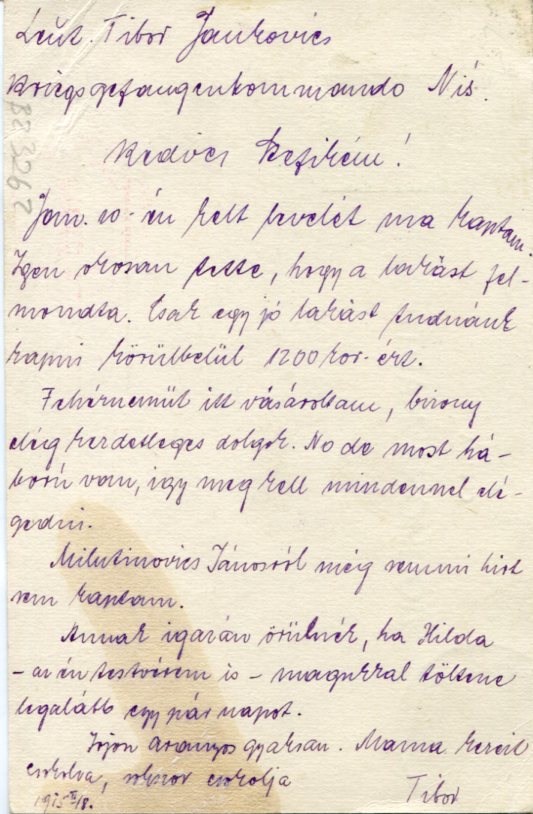 Leut. Tibor Jankovics
Kriegsgefangenkommando Niš.
883267
Kedves Kefirém!
Jan. 10-én kelt levelét ma kaptam.
Igen okosan tette, hogy a lakást fel-
mondta. Csak egy jó lakást tudnánk
kapni körülbelül 1200 kor-ért.
Fehérneműt itt vásároltam, bizony
elég kezdetleges dolgok. No de most há-
ború van, így meg kell mindennel elé-
gedni.
Milutinovics Jánosról még semmi hírt
sem kaptam.
Annak igazán örülnék, ha Hilda
- az én testvérem is - magukkal töltene
legalább egy pár napot.
Írjon aranyos gyakran. Mama kezeit
csókolva, sokszor csókolja
Tibor
1915 II/18.